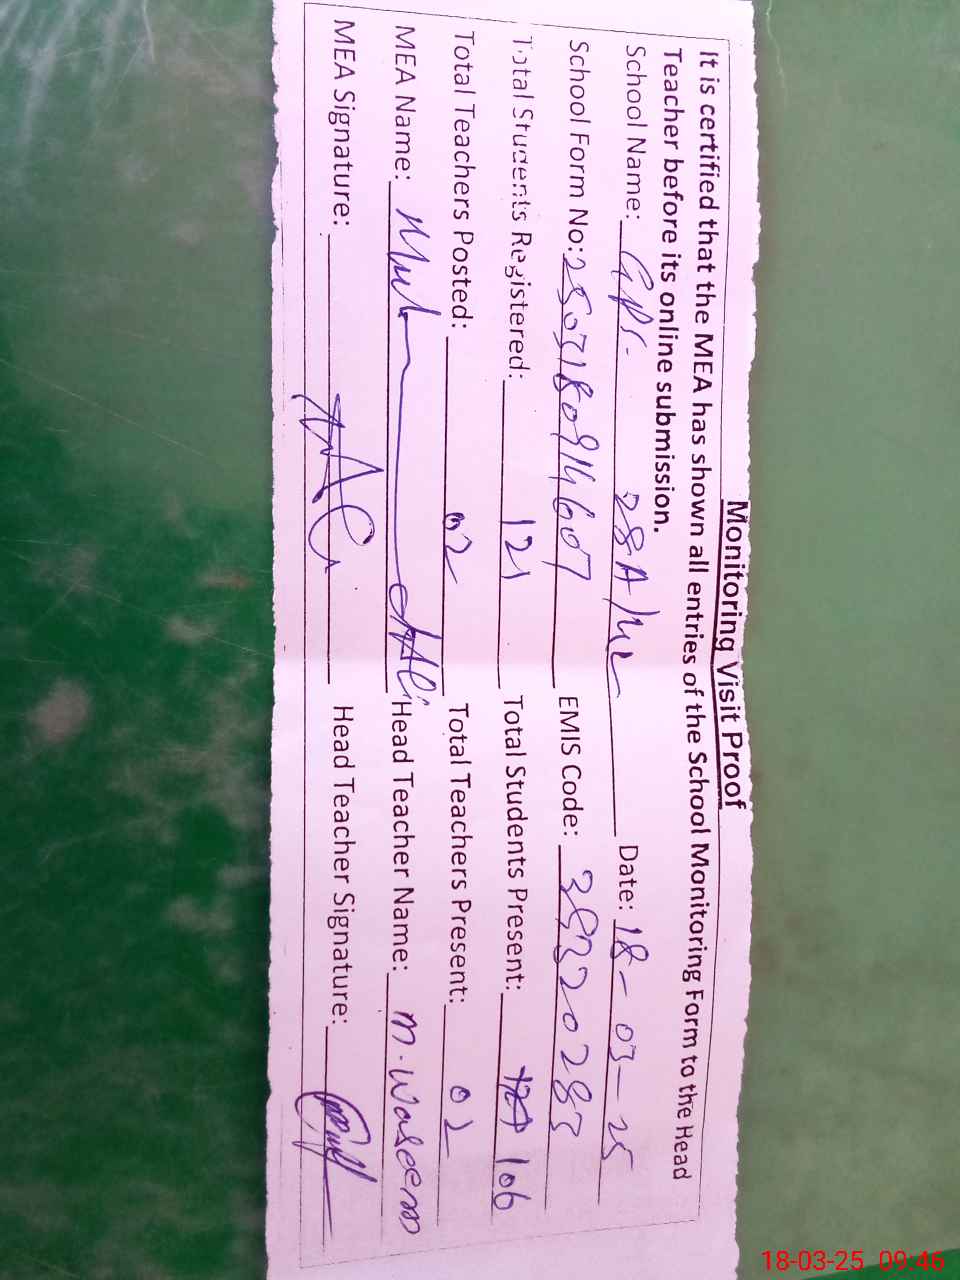 Monitoring Visit Proof
It is certified that the MEA has shown all entries of the School Monitoring Form to the Head
Teacher before its online submission.
School Name: GPS. 28A/ML Date: 18-03-25
School Form No: 2503180914607 EMIS Code:
Total Students Registered: 121 Total Students Present: 106
Total Teachers Posted: 02 Total Teachers Present: 02
MEA Name: Ali Head Teacher Name: M. Waseem
MEA Signature: Head Teacher Signature:
18-03-25 09:46